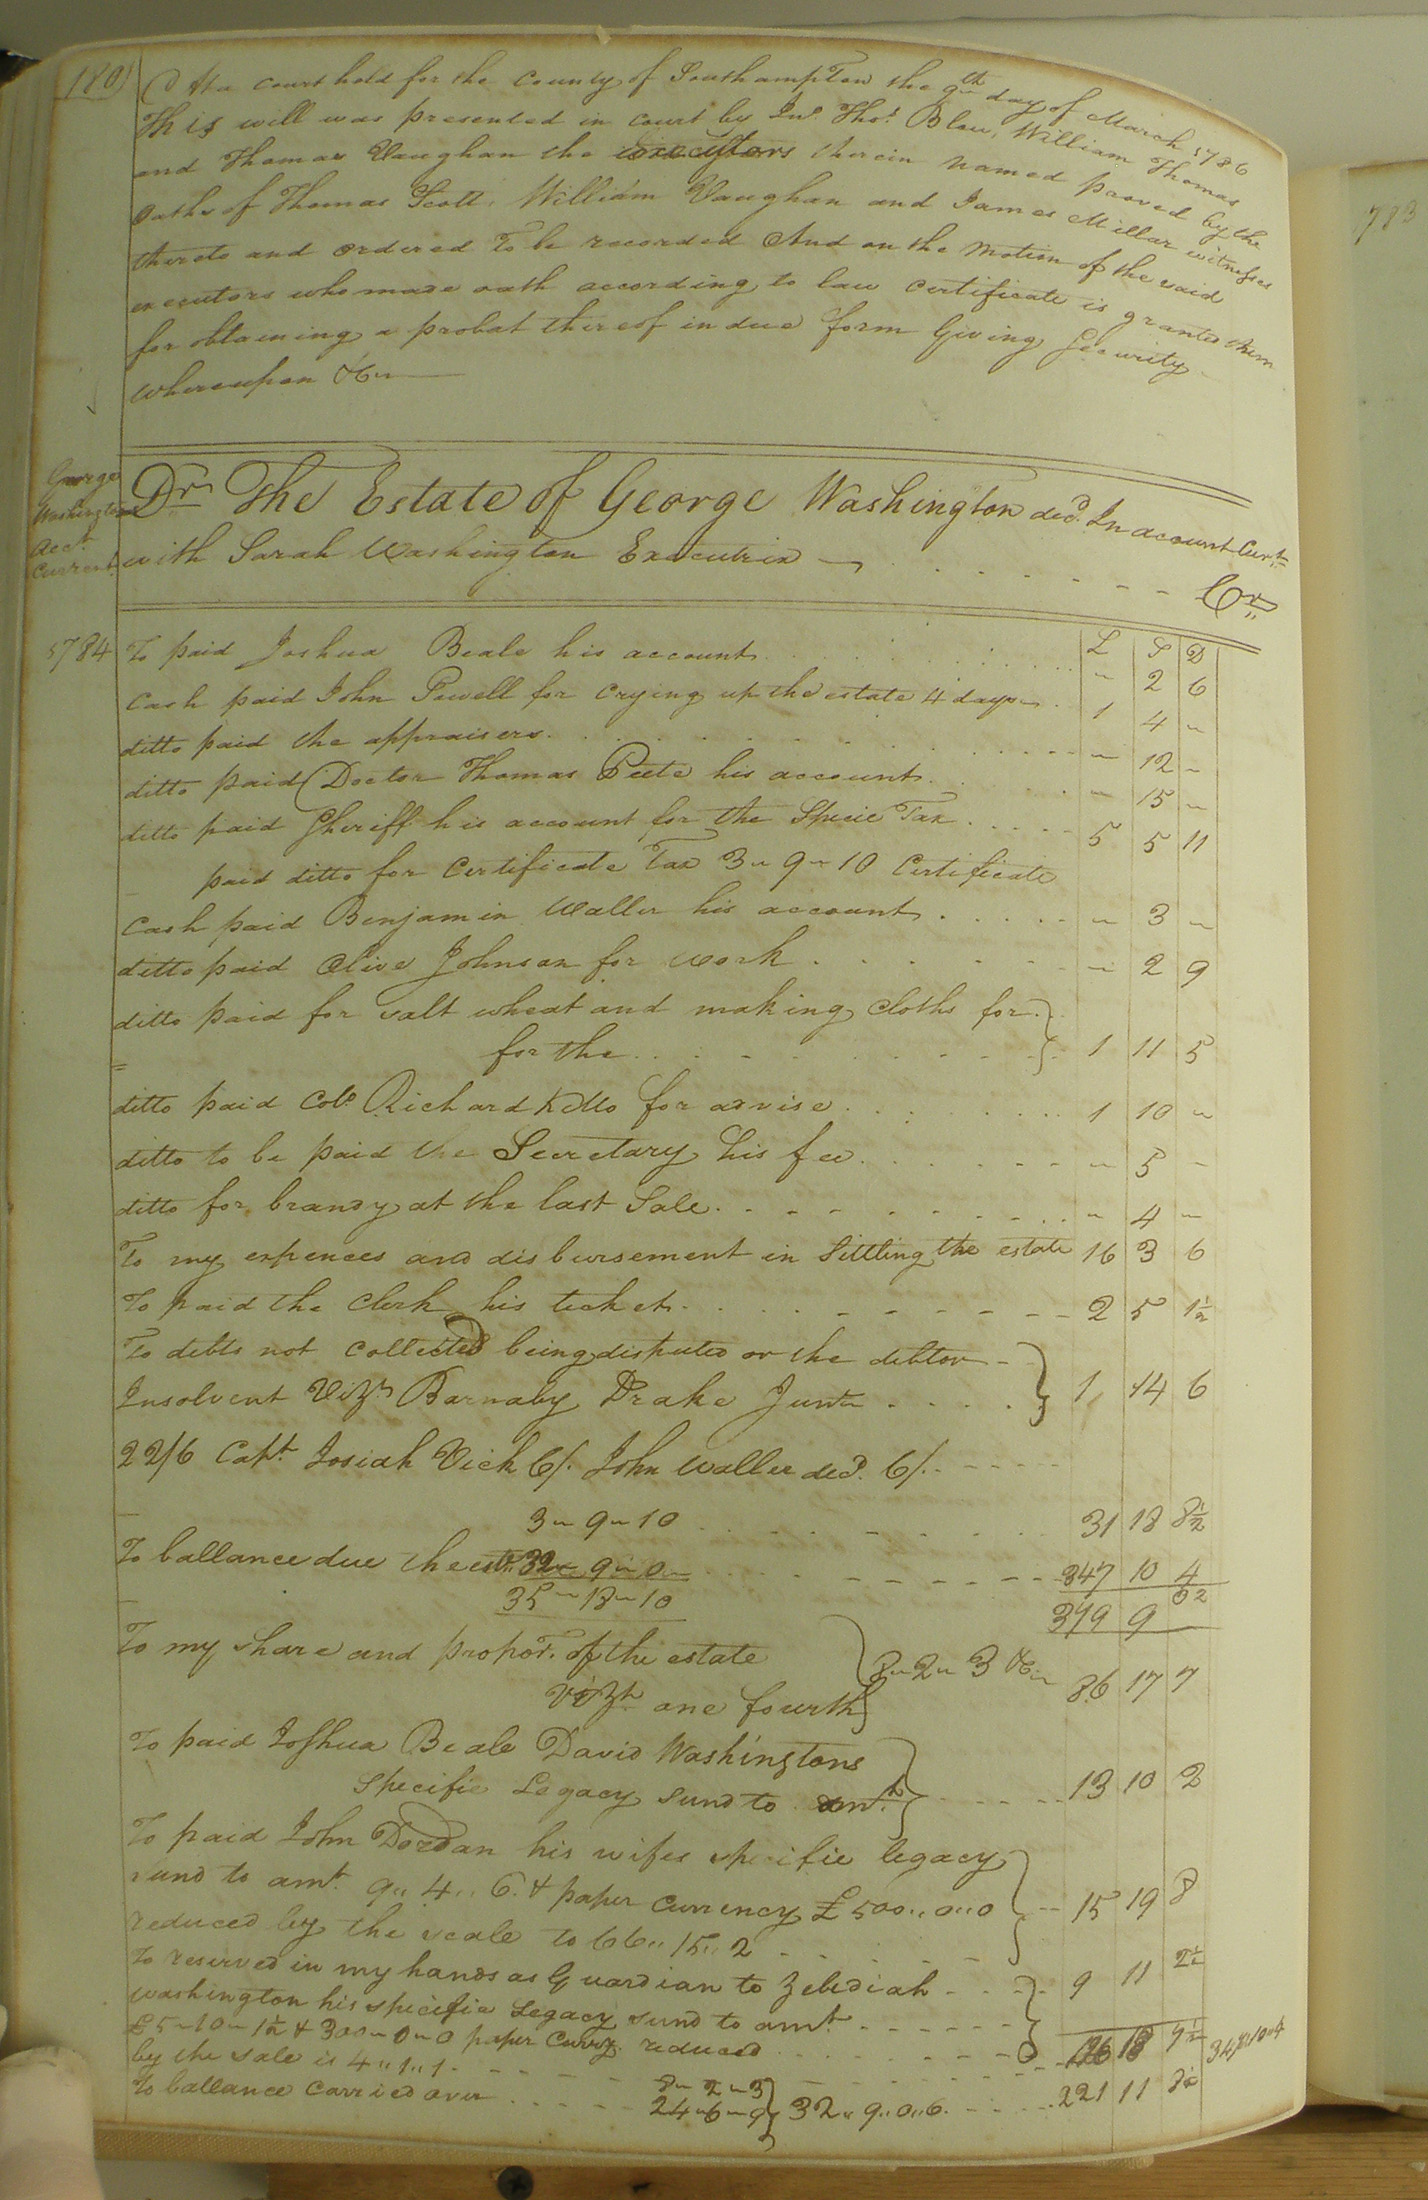 180
At a court held for the County of Southampton the 9th day of March 1786
This will was presented in court by Jno. Thos. Blow, William Thomas
and Thomas Vaughan the executors therein named proved by the
oaths of Thomas Scott, William Vaughan and James Millar witnesses
thereto and ordered to be recorded And on the motion of the said
executors who made oath according to law certificate is granted them
for obtaining a probat thereof in due form Giving Security
whereupon &c
George
Washingtons
acct.
Current
Dr The Estate of George Washington decd. In account Curt
with Sarah Washington Executrix
Cr
£ S D
1784 To paid Joshua Beale his account " 2 6
Cash paid John Powell for crying up the estate 4 days 1 4 "
ditto paid the appraisers " 12 "
ditto paid Doctor Thomas Peete his account " 15 "
ditto paid Sheriff his account for the Specie Tax 5 5 11
paid ditto for Certificate Tax 3 " 9 " 10 Certificate
Cash paid Benjamin Waller his account " 3 "
ditto paid Olive Johnson for work " 2 9
ditto paid for salt wheat and making cloths for
for the 1 11 5
ditto paid Colo. Richard Kello for advise 1 10 "
ditto to be paid the Secretary his fee " 5 "
ditto for brandy at the last Sale " 4 "
To my expences and disbursement in Sittling the estate 16 3 6
To paid the Clerk his tickets 2 5 1½
To debts not collected being disputed or the debtor
Insolvent Vizt. Barnaby Drake Junr 1 14 6
22/6 Capt. Josiah Vick 6/. John Waller decd. 6/.
3 " 9 " 10 31 18 8½
To ballance due the estt. 32 " 9 " 0 347 10 4
35 " 18 " 10 379 9
To my share and propor. of the estate
Vizt. one fourth 8 " 2 " 3 &c 86 17 7
To paid Joshua Beale David Washingtons
specific Legacy sund to amt. 13 10 2
To paid John Dordan his wifes specific legacy
sund to amt. 9 " 4 " 6. & paper Currency £500 " 0 " 0 15 19 8
reduced by the scale to 66 " 15 " 2
To reserved in my hands as Guardian to Zebediah 9 11 2½
Washington his specific Legacy sund to amt.
£5 " 10 " 1½ & 300 " 0 " 0 paper Curry. reduced
by the sale is 4 " 1 " 1 18 7½ 347 " 10 " 4
To ballance carried over 8 " 2 " 3
24 " 6 " 9 32 " 9 " 0 " 6. 221 11 8½